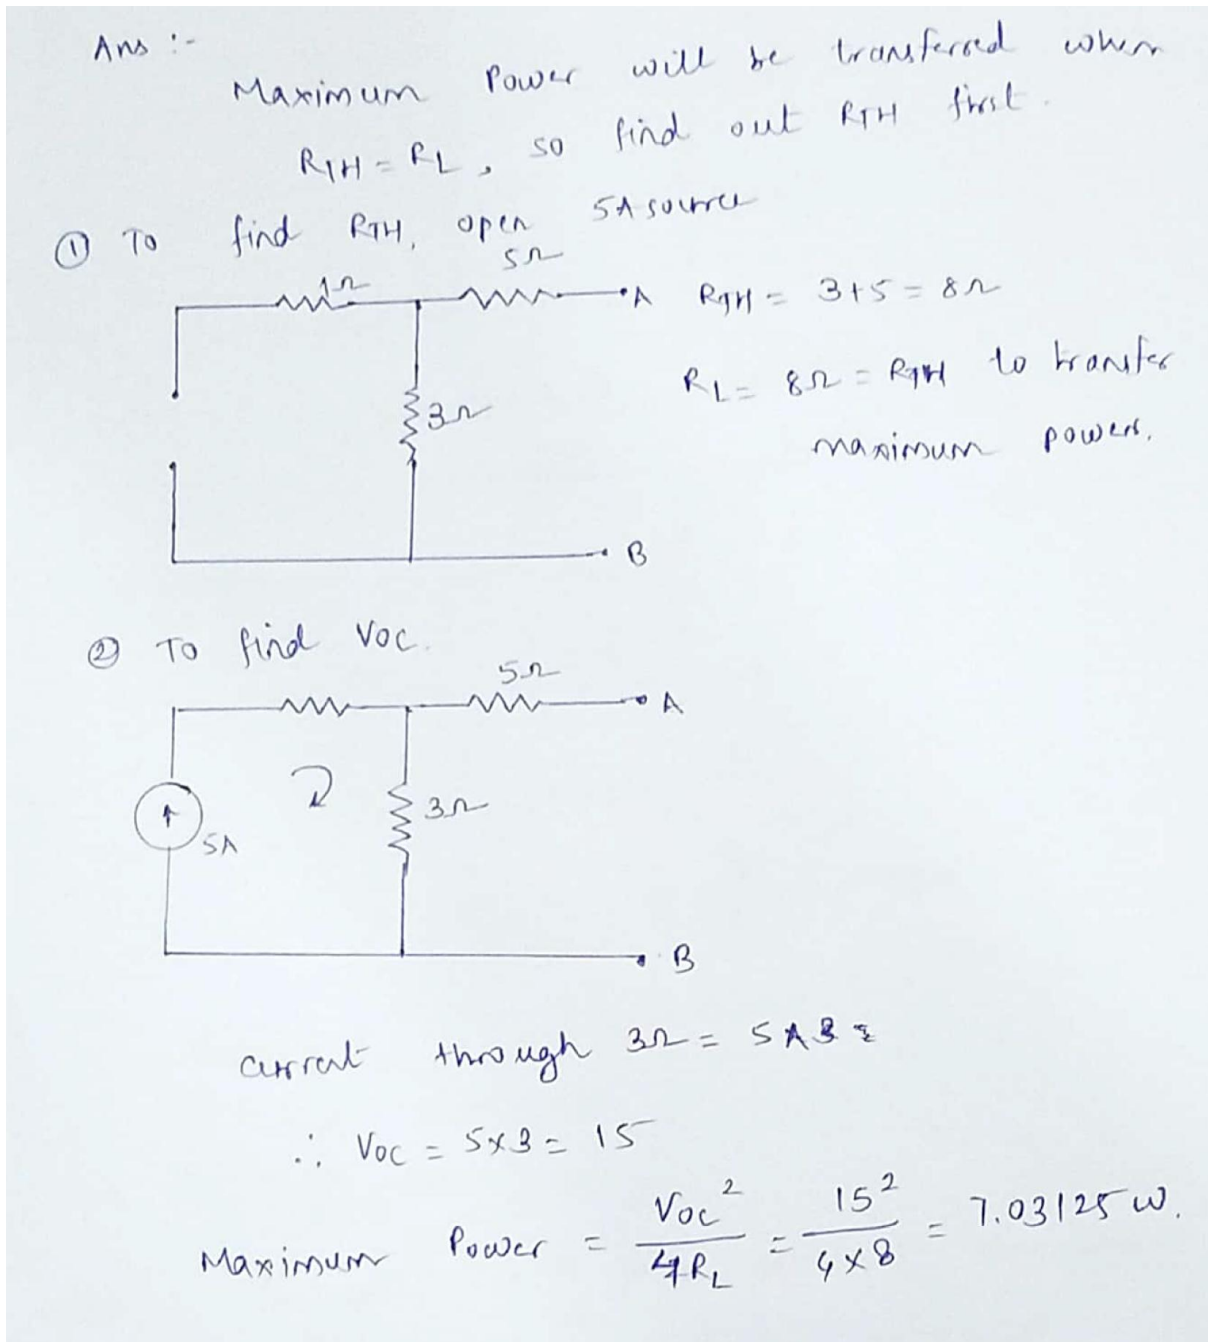 Ans :-
Maximum Power will be transferred when
RTH = RL, so find out RTH first.
① To find RTH, open 5A source
1Ω 5Ω A RTH = 3+5 = 8Ω
RL = 8Ω = RTH to transfer
3Ω
maximum power.
B
② To find Voc.
5Ω
A
3Ω
5A
B
current through 3Ω = 5A
∴ Voc = 5x3 = 15
Maximum Power = Voc² / 4RL = 15² / 4x8 = 7.03125 W.